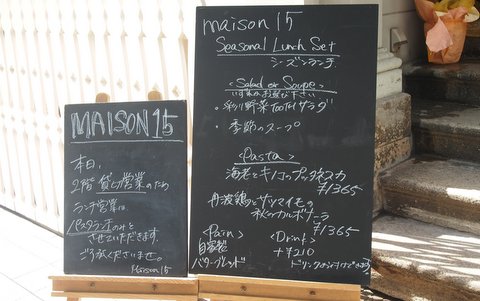 MAISON 15
本日、
2階 貸切営業のため
ランチ営業は
パスタランチのみと
させていただきます。
ご了承くださいませ。
Maison 15
maison 15
Seasonal Lunch Set
シーズンランチ
<Salad or Soupe>
いずれかお選び下さい
・彩り野菜 サラダ
・季節のスープ
<Pasta>
海老とキノコのプッタネスカ
¥1365
丹波鶏とサツマイモの
秋のカルボナーラ
¥1365
<Pain>
自家製
バターブレッド
<Drink>
+¥210